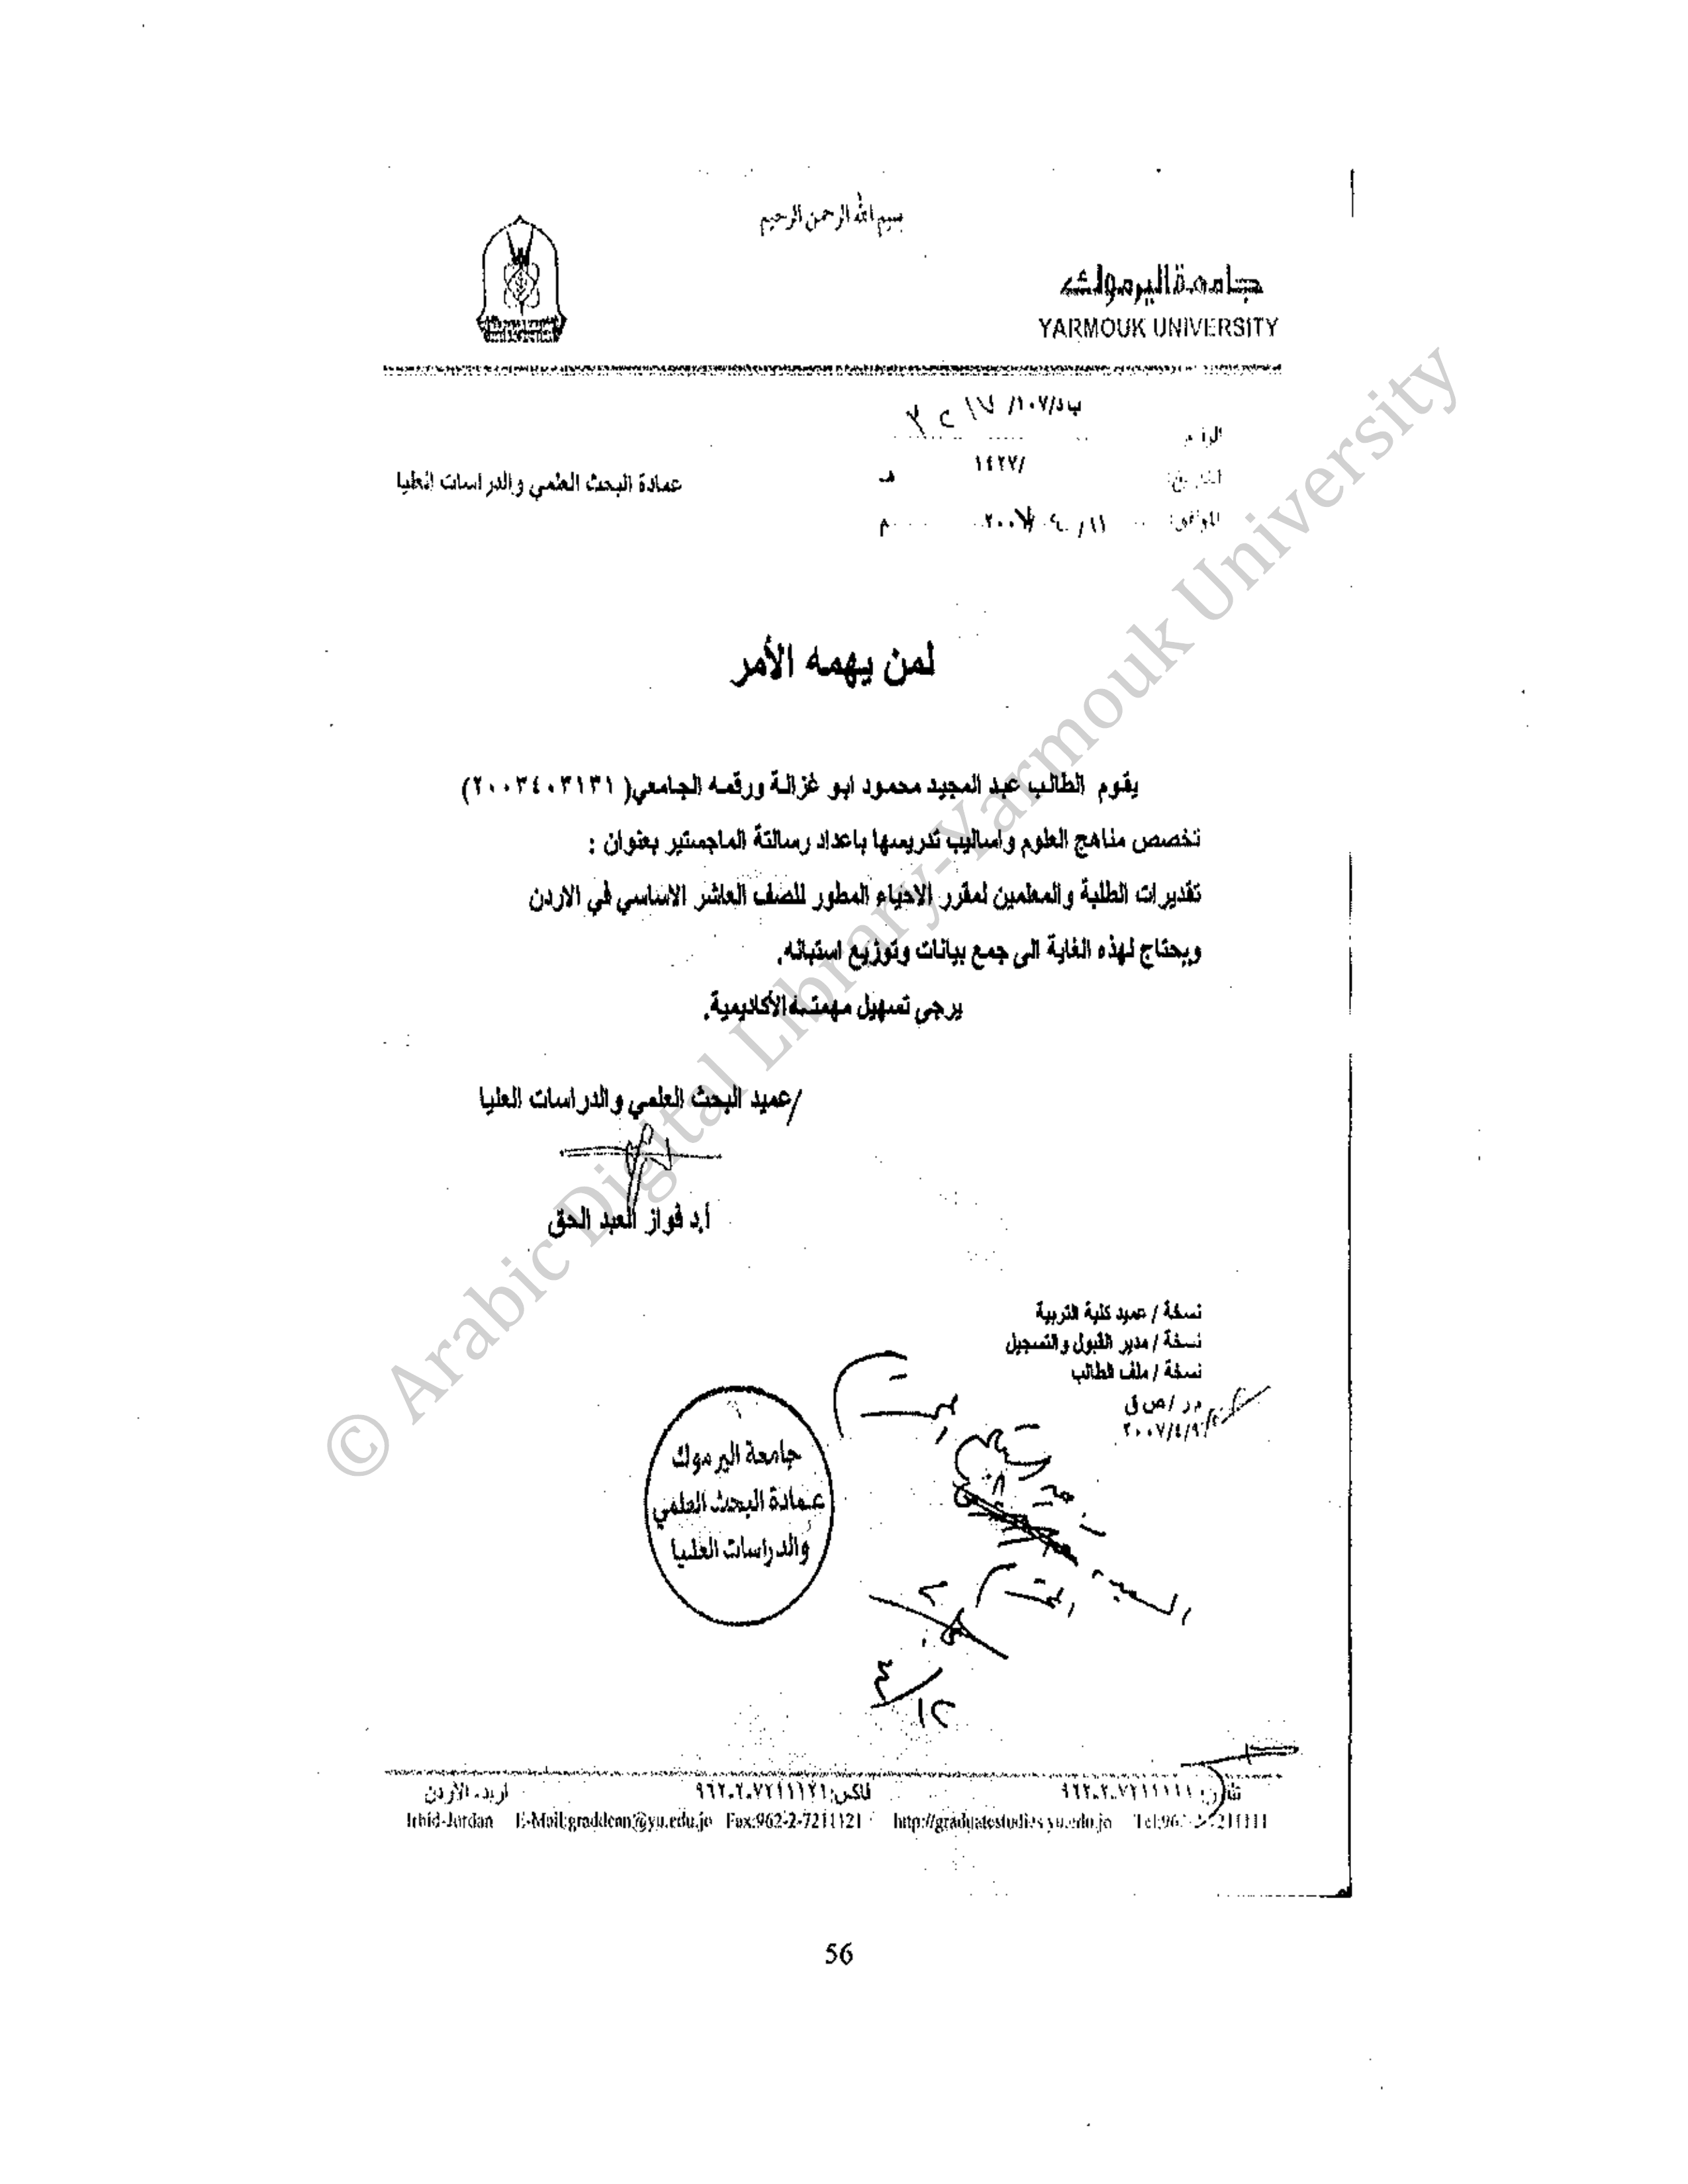 بسم الله الرحمن الرحيم
جامعة اليرموك
YARMOUK UNIVERSITY
الرقم ب د/١٠٧/
التاريخ: /١٤٢٧ هـ
الموافق: م
عمادة البحث العلمي والدراسات العليا
لمن يهمه الأمر
يقوم الطالب عبد المجيد محمود ابو غزالة ورقمه الجامعي( ٢٠٠٣٤٠٣١٣١)
تخصص مناهج العلوم واساليب تدريسها باعداد رسالتة الماجستير بعنوان :
تقديرات الطلبة والمعلمين لمقرر الاحياء المطور للصف العاشر الاساسي في الاردن
ويحتاج لهذه الغاية الى جمع بيانات وتوزيع استبانه.
يرجى تسهيل مهمته الأكاديمية.
/عميد البحث العلمي والدراسات العليا
أ.د فواز العبد الحق
نسخة / عميد كلية التربية
نسخة / مدير القبول والتسجيل
نسخة / ملف الطالب
م ر / ص ق
٢٠٠٧/٤/٩
جامعة اليرموك
عمادة البحث العلمي
والدراسات العليا
١٢/٤
فاكس:٩٦٢-٢-٧٢١١١٢١ اربد - الأردن
Irbid-Jordan E-Mail:graddean@yu.edu.jo Fax:962-2-7211121 http://graduatestudies.yu.edu.jo
56
© Arabic Digital Library-Yarmouk University